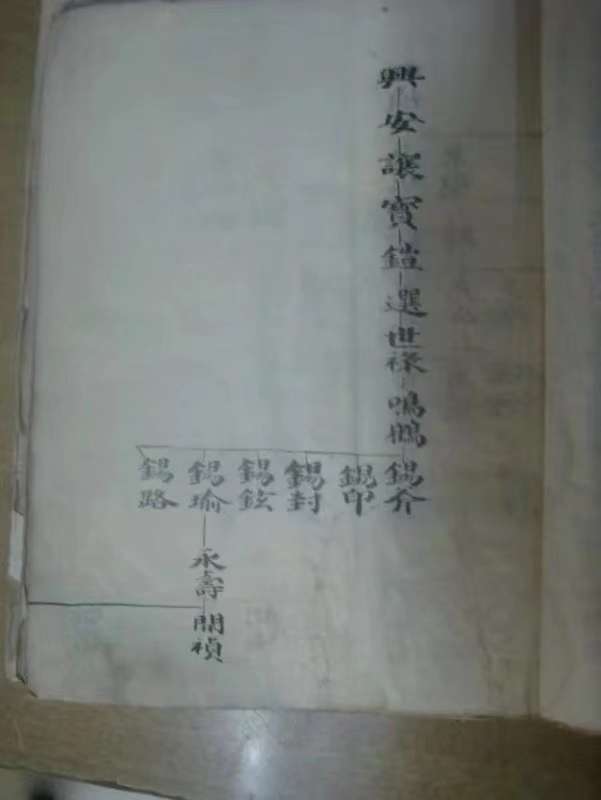 興安讓寶鎧選世祿鳴鵬
錫介
錫印
錫封
錫鉉
錫瑜
錫路
永壽
開禎